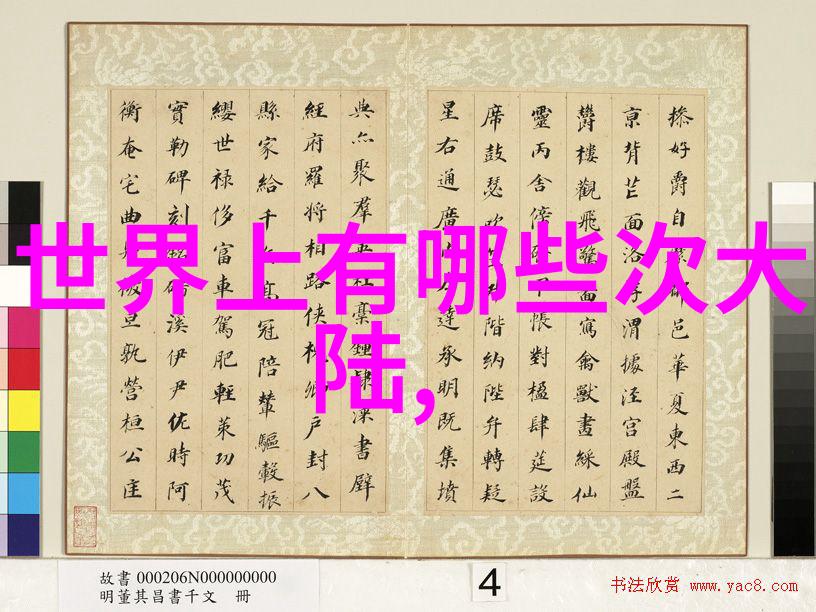 世界上有哪些次大陆,
操好爵自縻都邑華夏東西二
京背芒面洛浮渭據涇宮殿盤
鬱樓觀飛驚圖寫禽獸畫綵仙
靈丙舍傍啟甲帳對楹肆筵設
席鼓瑟吹笙升階納陛弁轉疑
星右通廣內左達承明既集墳
典亦聚羣英杜稾鍾隸漆書壁
經府羅將相路俠槐卿戶封八
縣家給千兵高冠陪輦驅轂振
纓世祿侈富車駕肥輕策功茂
實勒碑刻銘磻溪伊尹佐時阿
衡奄宅曲阜微旦孰營桓公匡
故書 000206N000000000
明董其昌書千文 冊
4
书法欣赏 www.yac8.com